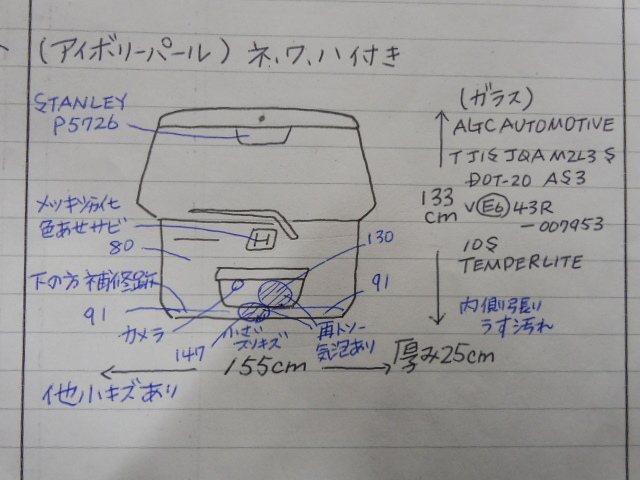 (アイボリーパール) ネ、ワ、ハ付き
STANLEY
P5726
(ガラス)
AGC AUTOMOTIVE
TJIS JQA M2L3S
DOT-20 AS3
133
cm
V E6 43R
-007953
10S
TEMPERLITE
内側張り
うす汚れ
メッキツライヒ
色あせサビ
80
H
130
下の方補修跡
91
91
カメラ
147
小ざ
スリキズ
再トソー
気泡あり
155cm
厚み25cm
他小キズあり